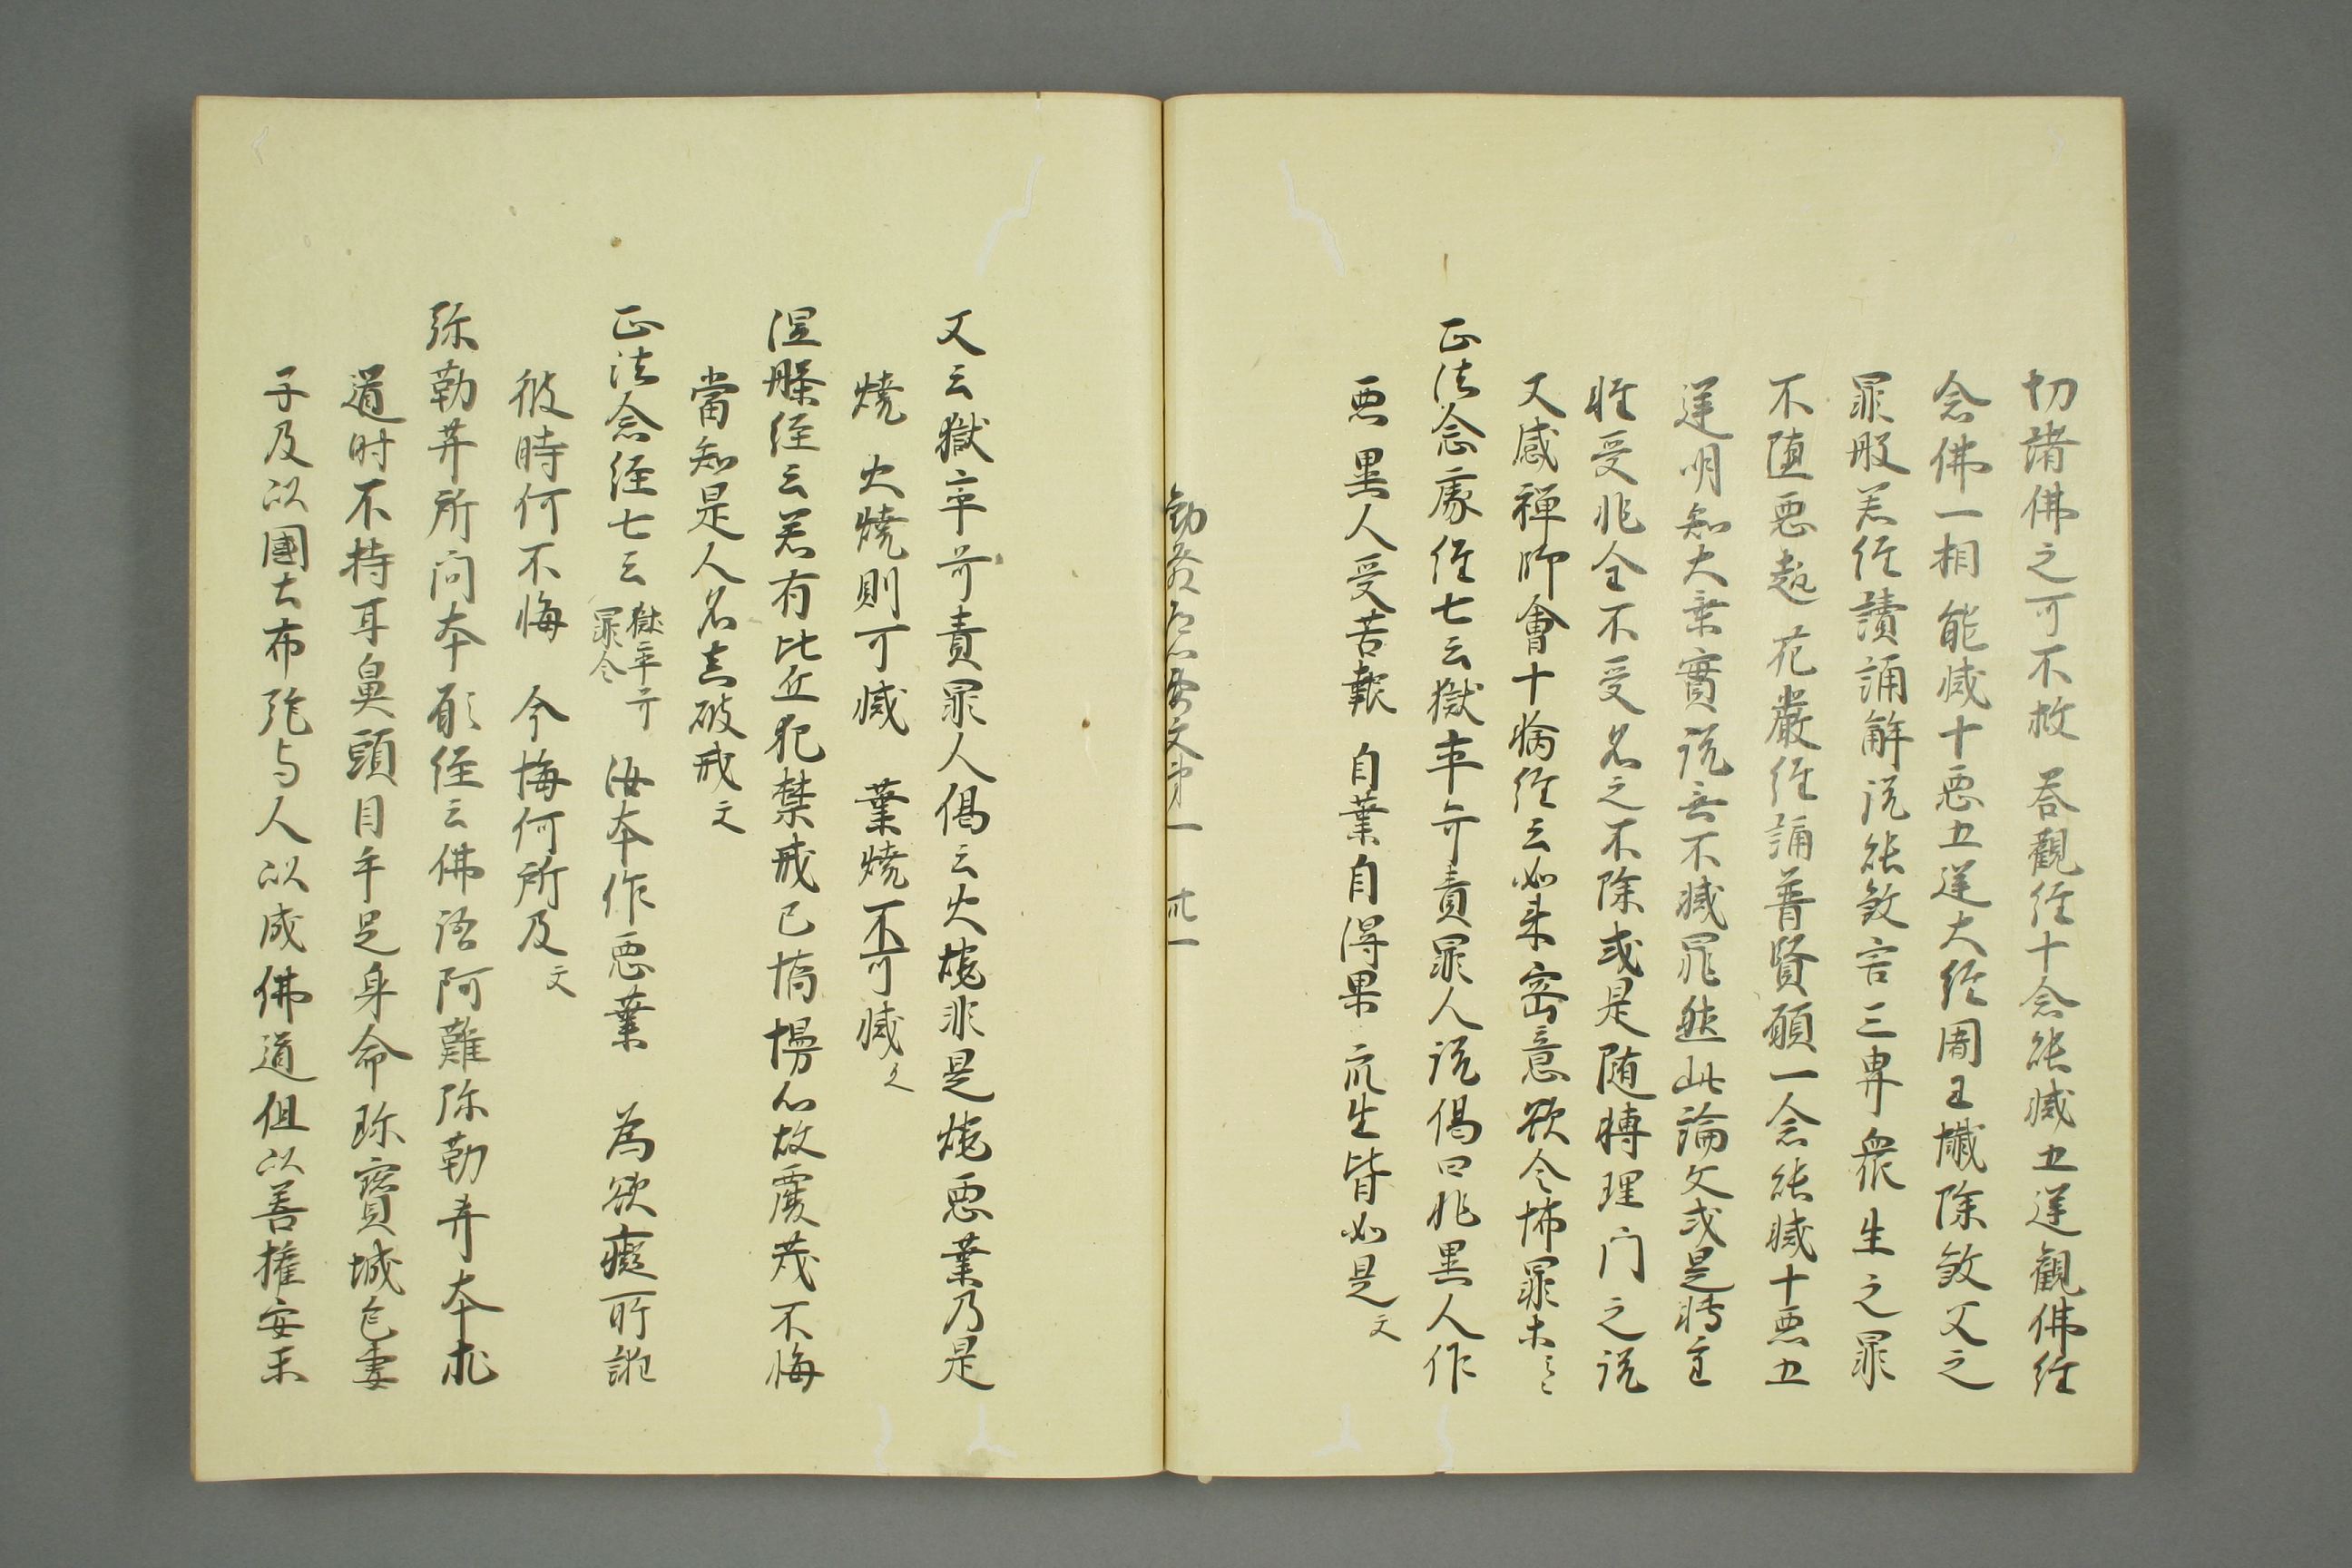 切諸佛之可不救 答觀經十念能滅五逆觀佛經
念佛一相能滅十惡五逆大經闍王懺除敘父之
罪般若經讀誦解説能敘害三界衆生之罪
不墮惡趣 花嚴經誦普賢願一念能滅十惡五
逆明知大乗實説無不滅罪然此論文或是轉重
軽受非全不受名之不除或是随轉理门之説
又感禅師會十病經云如来密意欲令怖罪木云々
正法念處經七云獄卒呵責罪人説偈曰非異人作
惡 異人受苦報 自業自得果 衆生皆如是文
要文第一 卅一
又云獄卒呵責罪人偈云火燒非是燒惡業乃是
燒 火燒則可滅 業燒不可滅文
涅槃經云若有比丘犯禁戒已憍慢心故覆蔵不悔
當知是人名真破戒文
正法念經七云獄卒呵罪人 汝本作惡業 為欲癡所誑
彼時何不悔 今悔何所及文
弥勒菩所问本願經云佛語阿難弥勒菩本求
道时不持耳鼻頭目手足身命珎寳城邑妻
子及以國土布施与人以成佛道但以善權安樂